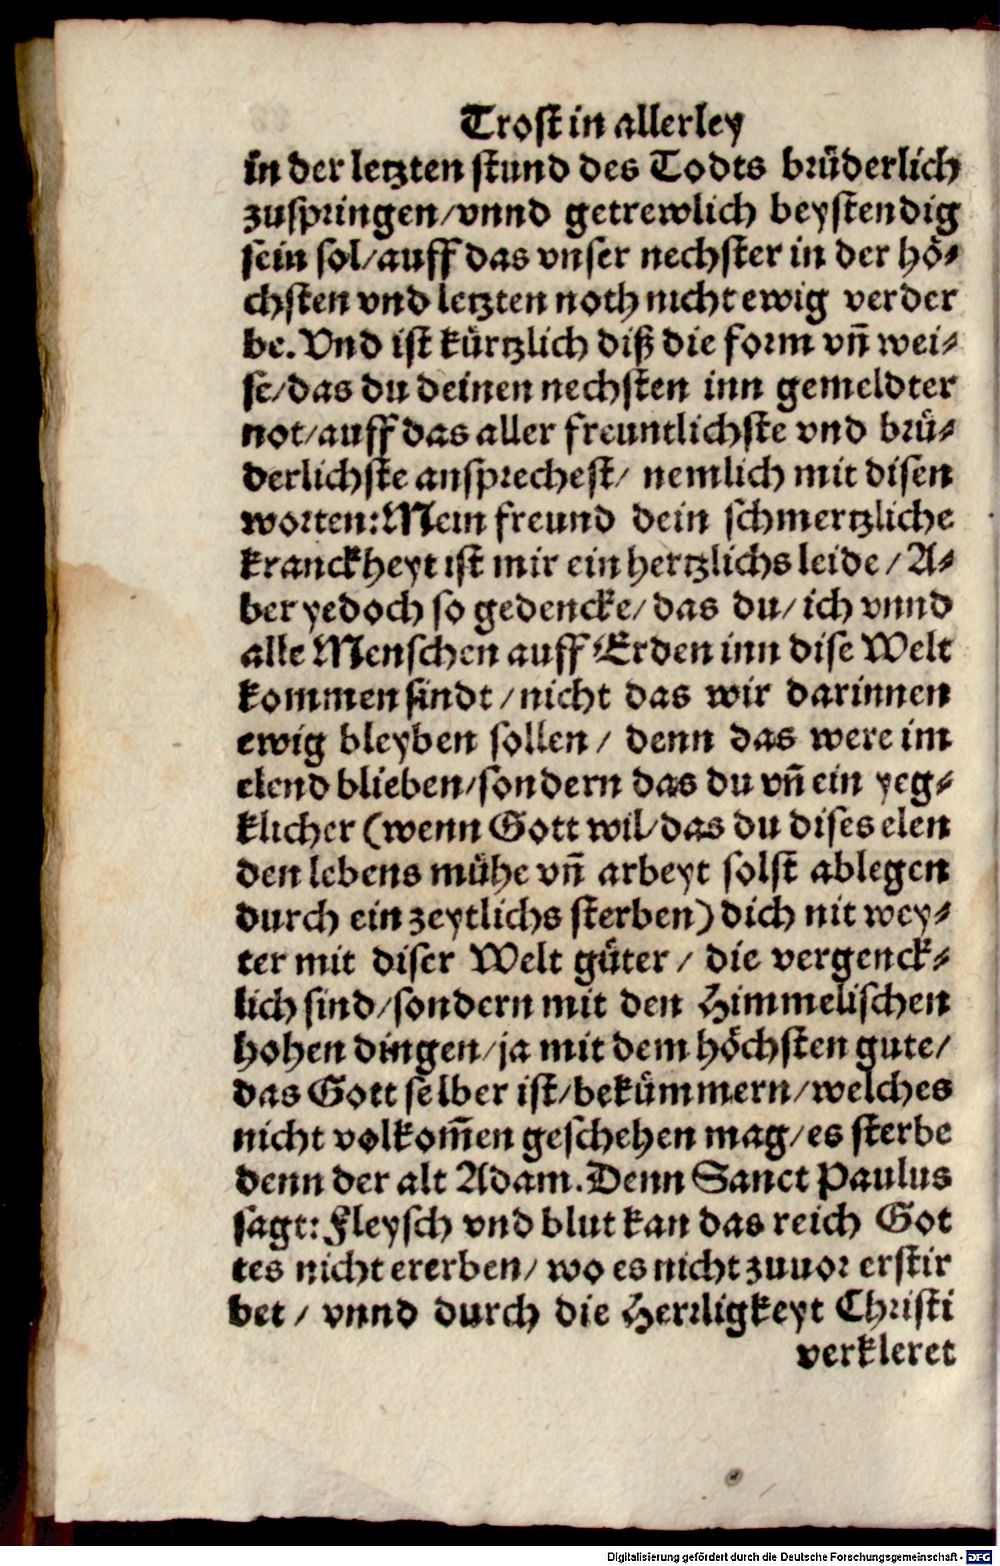 Trost in allerley
in der letzten stund des Todts brüderlich
zuspringen/vnnd getrewlich beystendig
sein sol/auff das vnser nechster in der hö⸗
chsten vnd letzten noth nicht ewig verder
be. Vnd ist kürtzlich diß die form vñ wei⸗
se/das du deinen nechsten inn gemeldter
not/auff das aller freuntlichste vnd brü⸗
derlichste ansprechest/ nemlich mit disen
worten: Mein freund dein schmertzliche
kranckheyt ist mir ein hertzlichs leide/A⸗
ber yedoch so gedencke/das du/ich vnnd
alle Menschen auff Erden inn dise Welt
kommen sindt/nicht das wir darinnen
ewig bleyben sollen/ denn das were im
elend blieben/sondern das du vñ ein yeg⸗
klicher (wenn Gott wil/das du dises elen
den lebens mühe vñ arbeyt solst ablegen
durch ein zeytlichs sterben) dich nit wey⸗
ter mit diser Welt güter/ die vergenck⸗
lich sind/sondern mit den Himmelischen
hohen dingen/ja mit dem höchsten gute/
das Gott selber ist/bekümmern/welches
nicht volkom̃en geschehen mag/es sterbe
denn der alt Adam. Denn Sanct Paulus
sagt: Fleysch vnd blut kan das reich Got
tes nicht ererben/ wo es nicht zuuor erstir
bet/ vnnd durch die Herrligkeyt Christi
verkleret
Digitalisierung gefördert durch die Deutsche Forschungsgemeinschaft - DFG